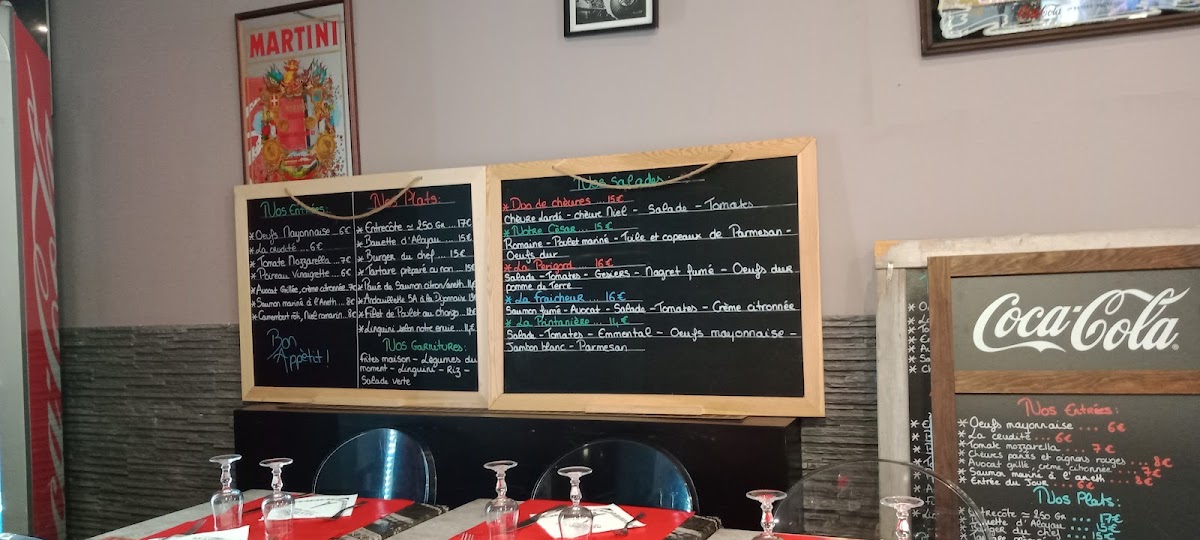 MARTINI
Nos Entrées:
* Oeufs Mayonnaise ... 6€
* La crudité ... 6€
* Tomate Mozzarella ... 7€
* Poireau Vinaigrette ... 6€
* Avocat Grillée, crème citronnée 7€
* Saumon mariné à l'Aneth ... 8€
* Camembert rôti, Miel romarin ... 8€
Bon
Appétit!
Nos Plats:
* Entrecôte ≈ 250 Gr ... 17€
* Bavette d'Aloyau ... 15€
* Burger du chef ... 15€
* Tartare préparé ou non ... 15€
* Pavé de Saumon citron/aneth
* Andouillette 5A à la Dijonnaise
* Filet de Poulet au chorizo
* Linguini selon notre envie
Nos Garnitures:
frites maison - Légumes du
moment - Linguini - Riz -
Salade verte
Nos Salades:
* Duo de chèvres ... 15€
chèvre Lardé - chèvre Miel - Salade - Tomates
* Notre César ... 15€
Romaine - Poulet mariné - Tuile et copeaux de Parmesan -
Oeufs dur
* La Périgord ... 16€
Salade - Tomates - Gesiers - Magret fumé - Oeufs dur
pomme de Terre
* La fraicheur ... 16€
Saumon fumé - Avocat - Salade - Tomates - Crème citronnée
* La Printanière ... 14€
Salade - Tomates - Emmental - Oeufs mayonnaise -
Jambon blanc - Parmesan
Coca-Cola
Nos Entrées:
* Oeufs mayonnaise ... 6€
* La crudité ... 6€
* Tomate mozzarella ... 7€
* Chèvres panés et oignons rouges ... 8€
* Avocat grillé, crème citronnée ... 7€
* Saumon mariné à l'aneth ... 8€
* Entrée du Jour ... 6€
Nos Plats:
* Entrecôte ≈ 250 Gr ... 17€
* Bavette d'Aloyau ... 15€
* Burger du chef ... 15€